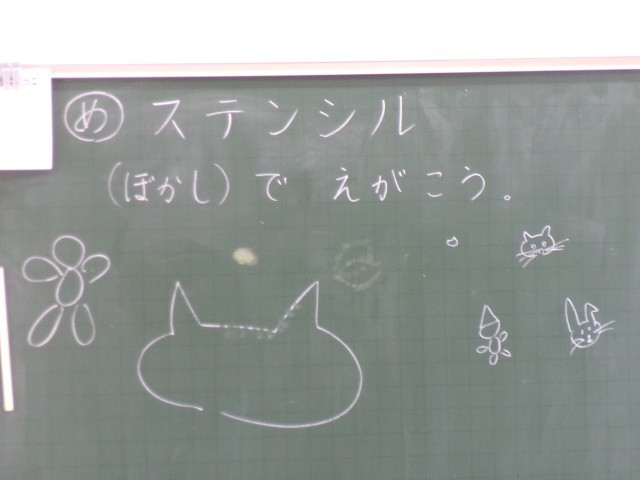 め ステンシル
(ぼかし)で えがこう。